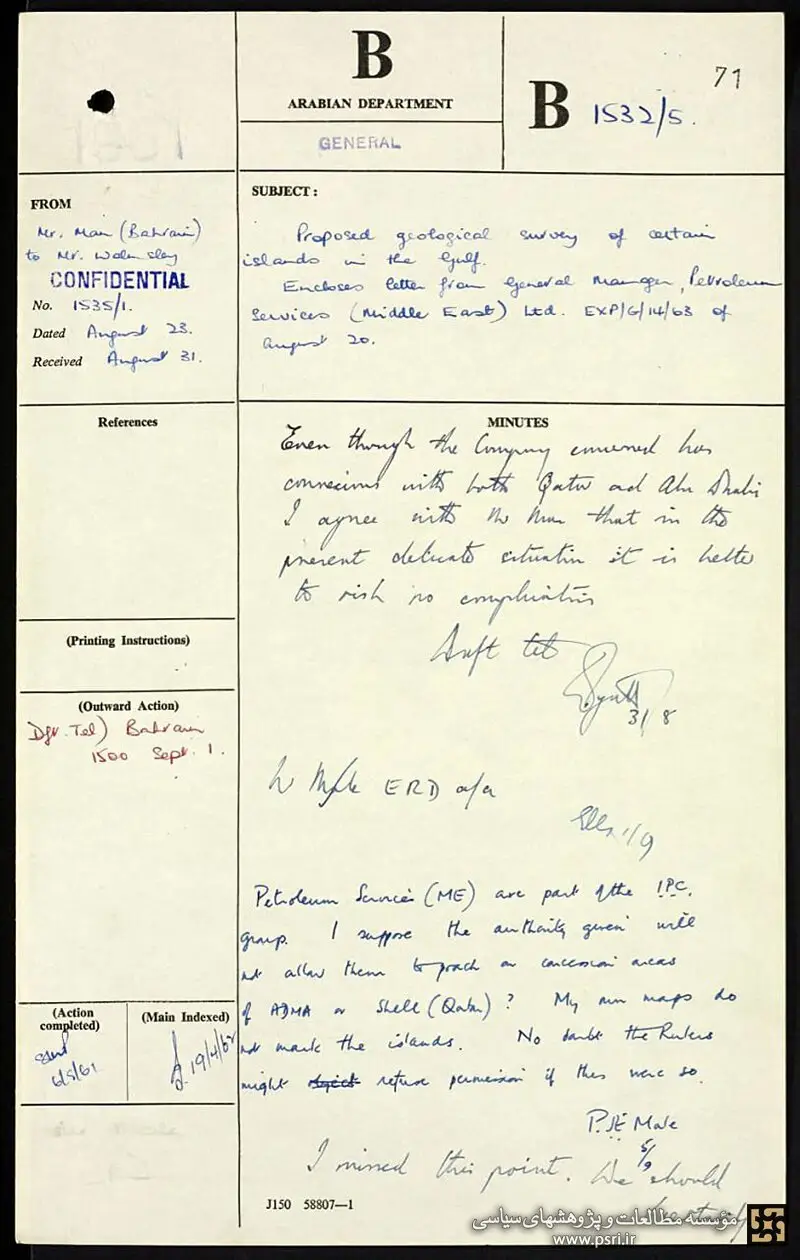 71
B
ARABIAN DEPARTMENT
GENERAL
B 1532/5.
FROM
Mr. Man (Bahrain)
to Mr. Walmsley
CONFIDENTIAL
No. 1535/1.
Dated August 23.
Received August 31.
SUBJECT :
Proposed geological survey of certain
islands in the Gulf.
Encloses letter from General Manager, Petroleum
Services (Middle East) Ltd. EXP/G/14/63 of
August 20.
References
(Printing Instructions)
(Outward Action)
Dft. Tel) Bahrain
1500 Sept. 1.
(Action
completed)
6/9/61
(Main Indexed)
19/4/62
MINUTES
Even though the Company concerned has
connexions with both Qatar and Abu Dhabi
I agree with Mr Man that in the
present delicate situation it is better
to risk no complications
Draft tel
31/8
Mr Male ERD o/r
1/9
Petroleum Services (ME) are part of the IPC.
group. I suppose the authority given will
not allow them to poach on concession areas
of ADMA or Shell (Qatar) ? My own maps do
not mark the islands. No doubt the Rulers
might object refuse permission if this were so.
P.J.E. Male
5/9
I missed this point. We should
J150 58807—1
مؤسسه مطالعات و پژوهشهای سیاسی
www.psri.ir